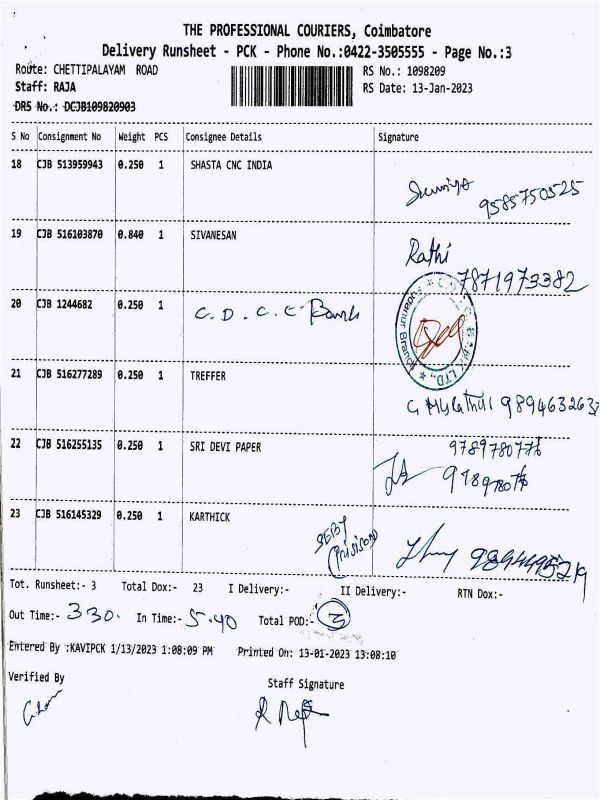 THE PROFESSIONAL COURIERS, Coimbatore
Delivery Runsheet - PCK - Phone No.:0422-3505555 - Page No.:3
Route: CHETTIPALAYAM ROAD
RS No.: 1098209
Staff: RAJA
RS Date: 13-Jan-2023
DRS No.: DCJB109820903
S No Consignment No Weight PCS Consignee Details Signature
18 CJB 513959943 0.250 1 SHASTA CNC INDIA
9585750525
19 CJB 516103870 0.840 1 SIVANESAN
Rathi
7871973382
20 CJB 1244682 0.250 1 C. D. C. C Bank
21 CJB 516277289 0.250 1 TREFFER
9894632637
22 CJB 516255135 0.250 1 SRI DEVI PAPER
9789780776
23 CJB 516145329 0.250 1 KARTHICK
Tot. Runsheet:- 3 Total Dox:- 23 I Delivery:- II Delivery:- RTN Dox:-
Out Time:- 330. In Time:- 5.40 Total POD:- 3
Entered By :KAVIPCK 1/13/2023 1:08:09 PM Printed On: 13-01-2023 13:08:10
Verified By
Staff Signature